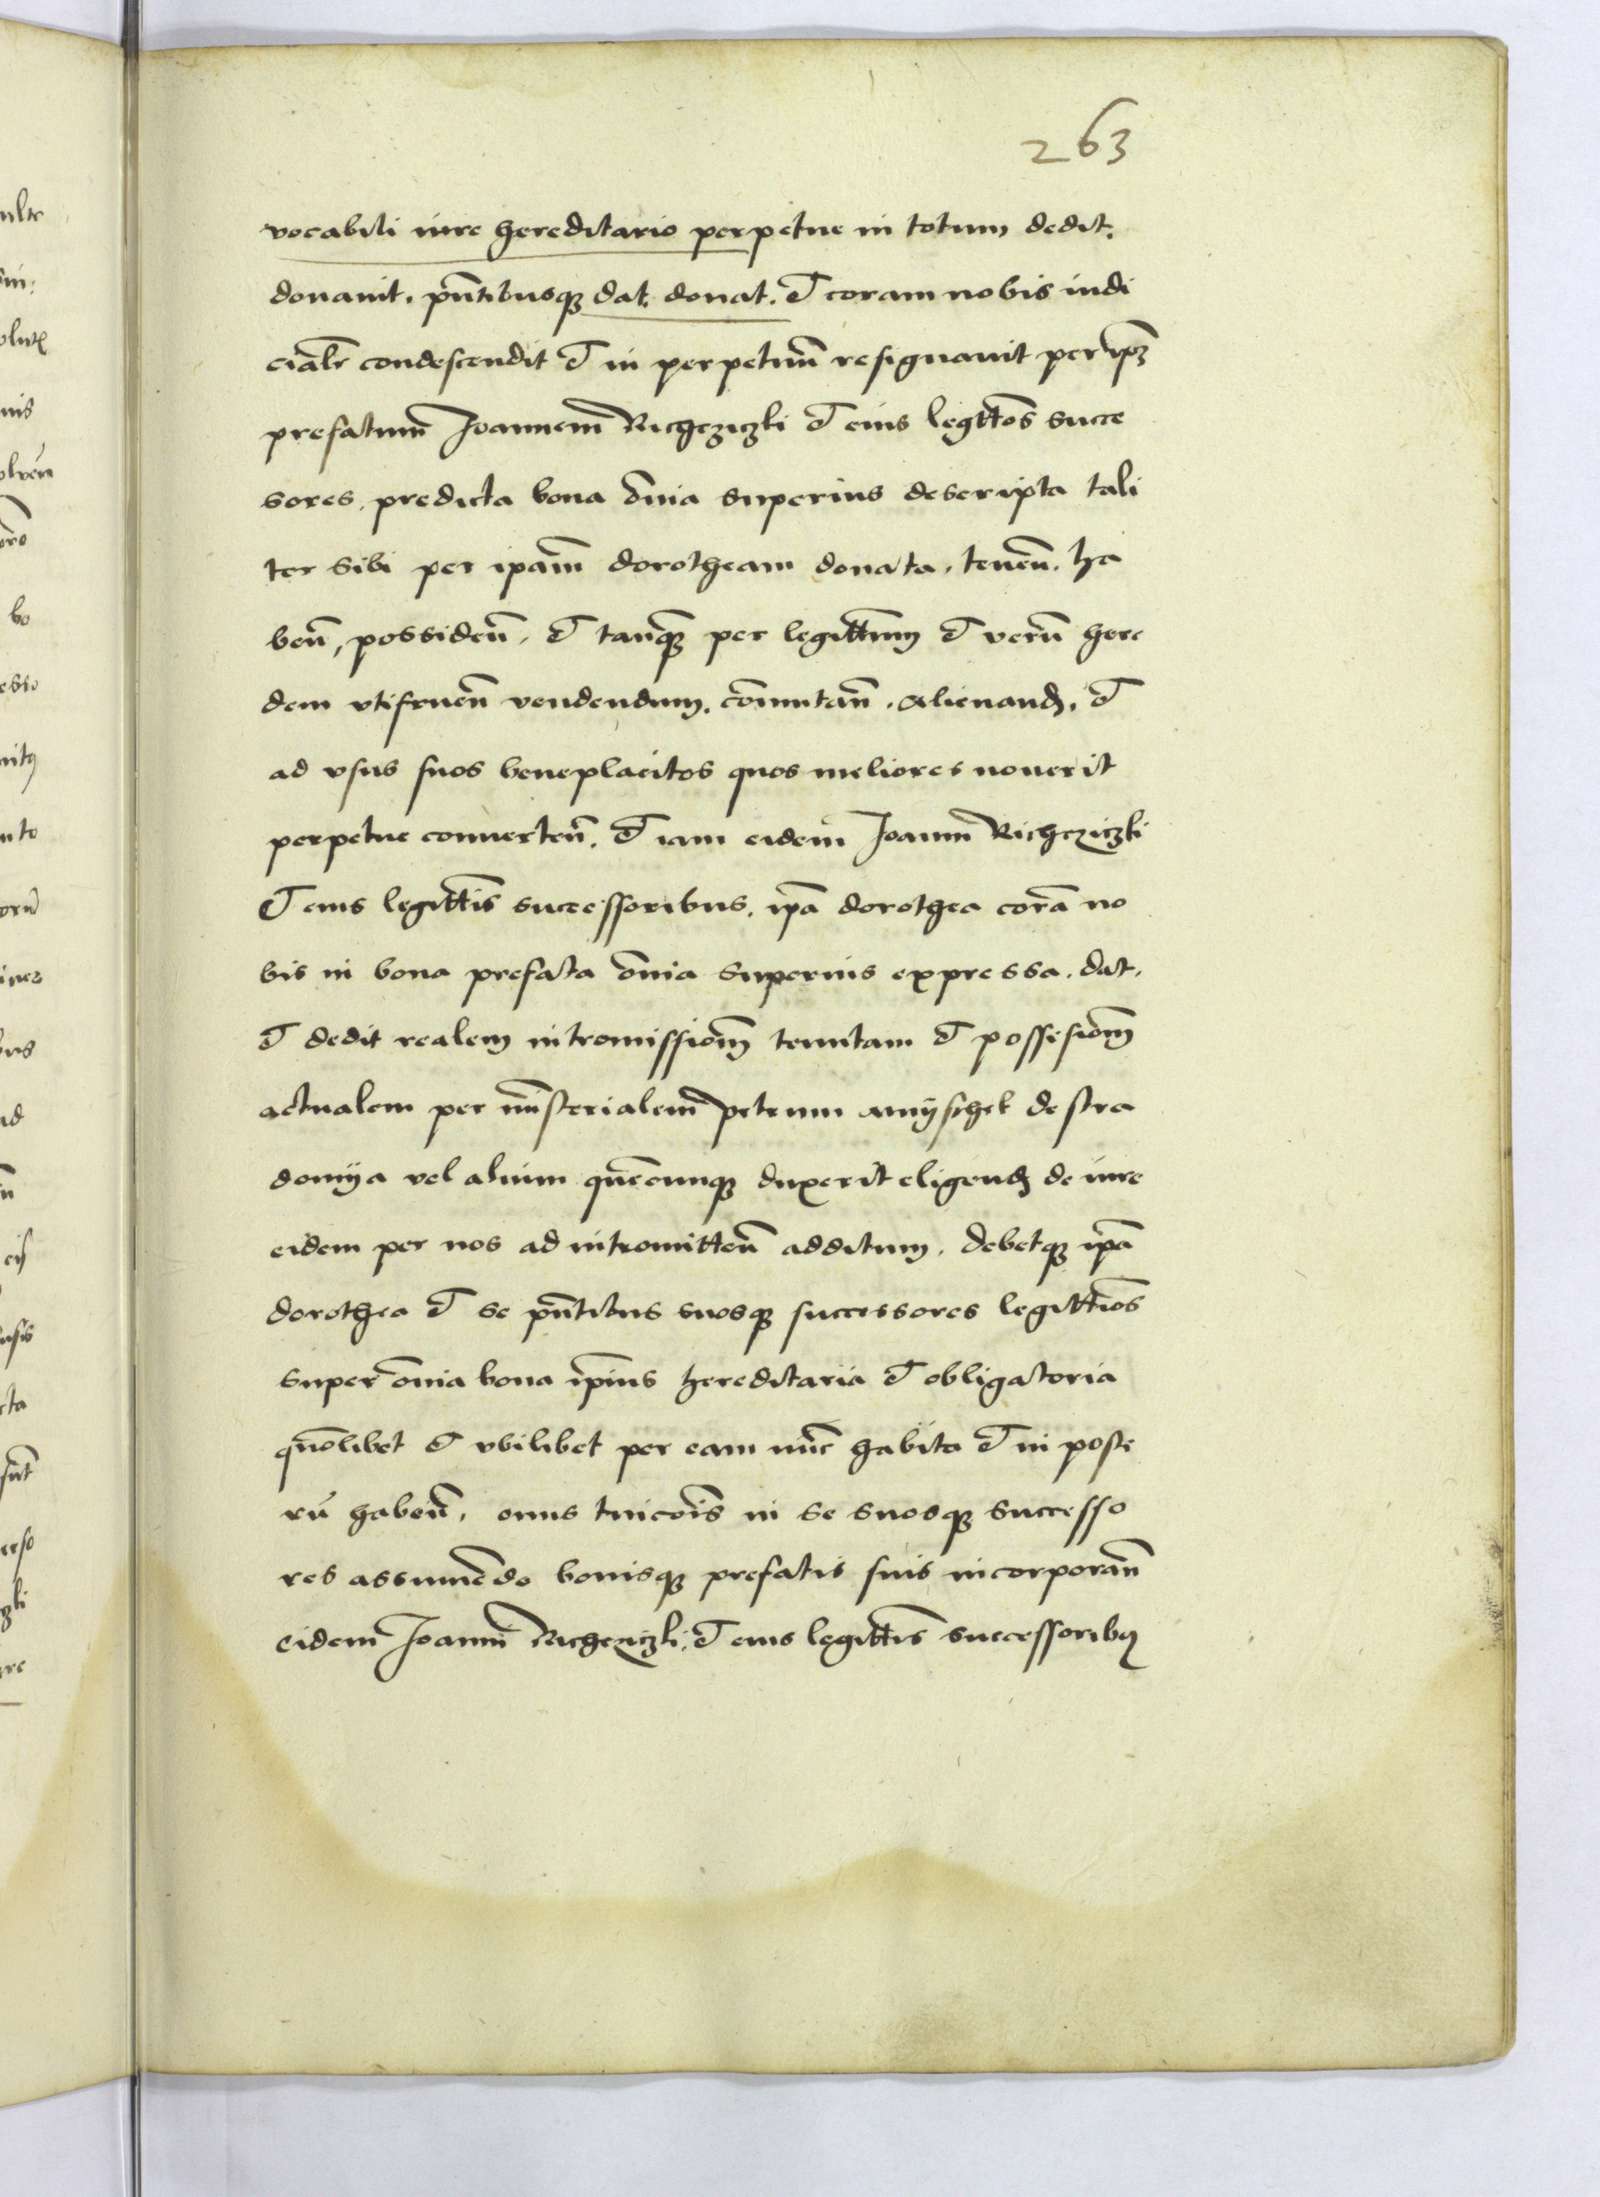 263
vocabili iure hereditario perpetue in totum dedit.
donauit. pñtibusq̃ dat. donat. et coram nobis iudi
cialr̃ condescendit et in perpetuũ resignauit per ip̃ꝫ
prefatum̃ Joannem̃ Richczyczki et eius legittõs succe
sores. predicta bona õnia superius descripta tali
ter sibi per ipam̃ dorotheam donata. teneñ. ha
beñ, possideñ. et tanq̃ per legittm̃ et verũ here
dem vtifrueñ vendendum. cõmutañ. alienanđ. et
ad vsus suos beneplacitos quos meliores nouerit
perpetue conuerteñ. et iam eidem Joanni Richczyczki
et eius legittĩs successoribus. ip̃a dorothea corã no
bis in bona prefata õnia superius expressa. dat.
et dedit realem intromissiom̃ tenutam et possesiom̃
actualem per miñsterialem̃ petrum myschek de stra
domya vel alium quẽcunq̃ duxerit eligenđ de iure
eidem per nos ad intromitteñ additum. debetq̃ ip̃a
dorothea et se pñtibus suosq̃ successores legittĩos
super õnia bona ip̃ius hereditaria et obligatoria
quõlibet et vbilibet per eam nũc habita et in poste
rũ habeñ. onus tuicõis in se suosq̃ successo
res assumẽdo bonisq̃ prefatis suis incorporañ
eidem Joanni Richczyczki. et eius legittĩs successoribꝰ